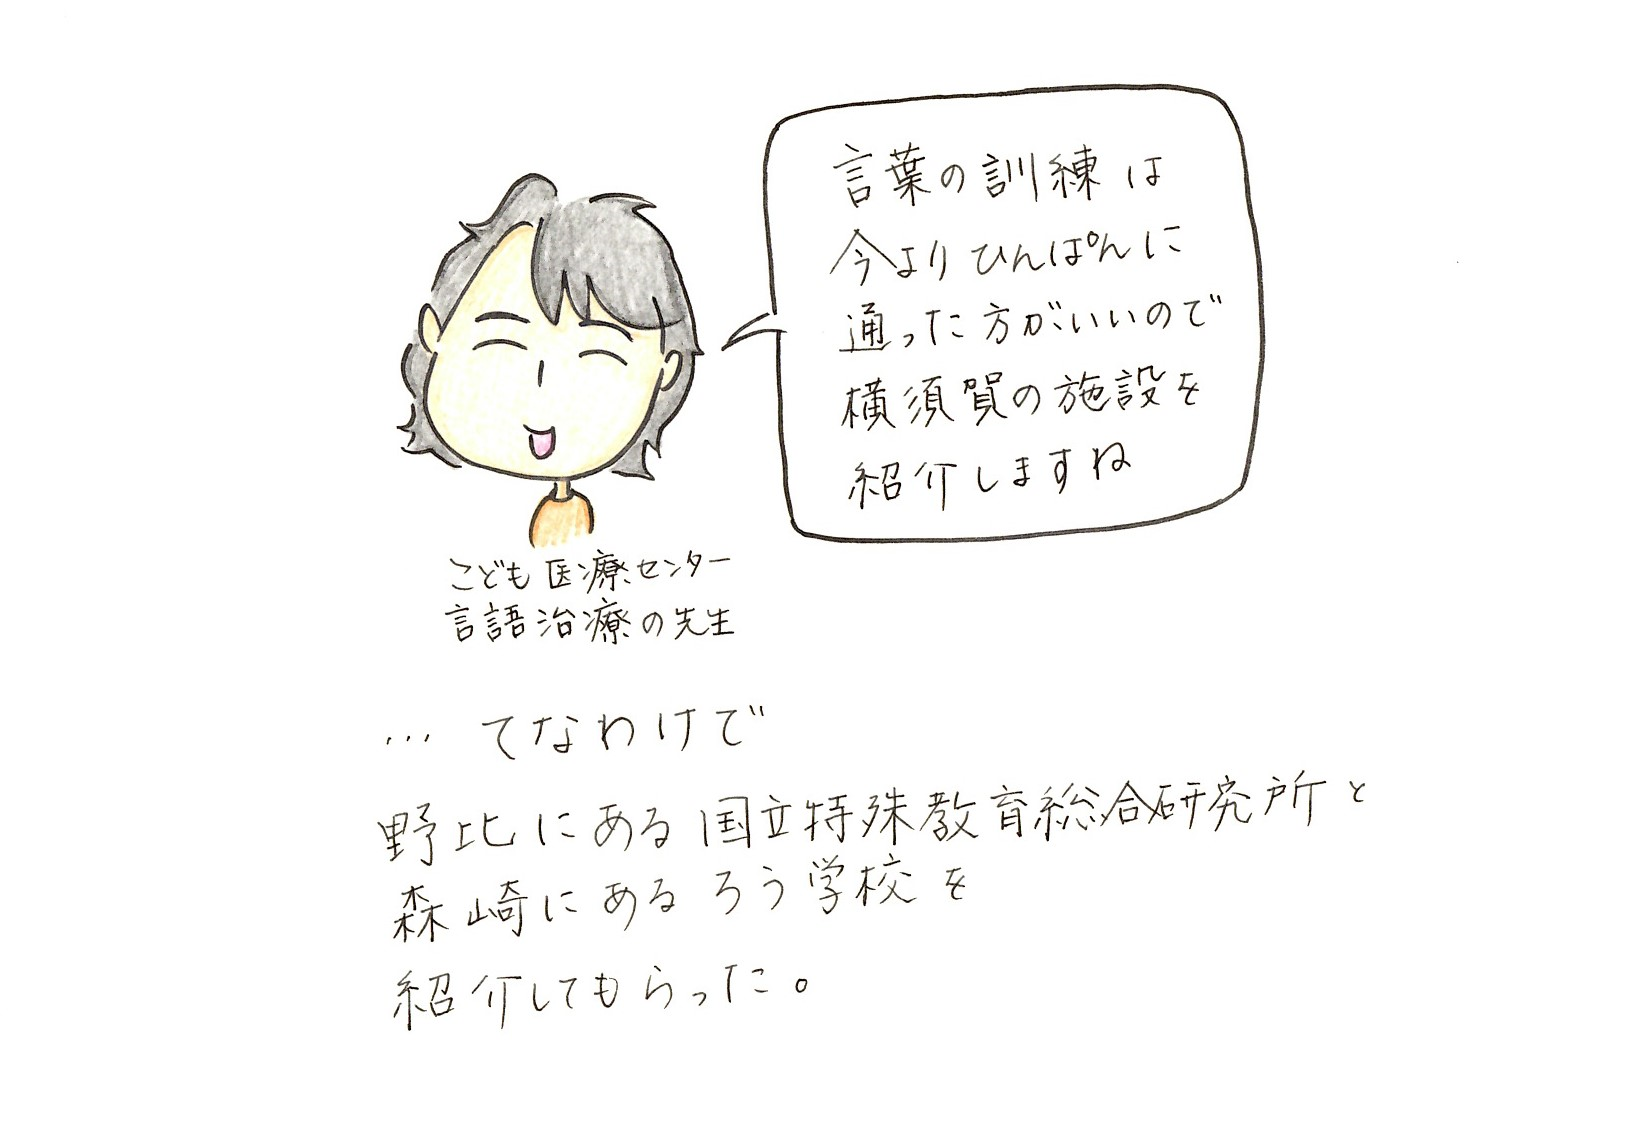 言葉の訓練は
今よりひんぱんに
通った方がいいので
横須賀の施設を
紹介しますね
こども医療センター
言語治療の先生
… てなわけで
野比にある国立特殊教育総合研究所と
森崎にあるろう学校を
紹介してもらった。